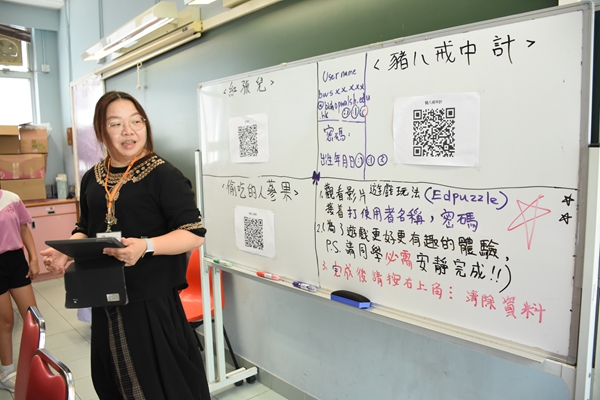 <紅孩兒>
Username
bwsxxxxx
@bishopwalsh.edu
.hk
密碼:
出生年月日
<豬八戒中計>
豬八戒中計
<偷吃的人蔘果>
1. 觀看影片遊戲玩法 (Edpuzzle)
接着打使用者名稱,密碼
2. 為了遊戲更好更有趣的體驗,
P.S. 請同學必需安靜完成!!)
3. 完成後請按右上角:清除資料